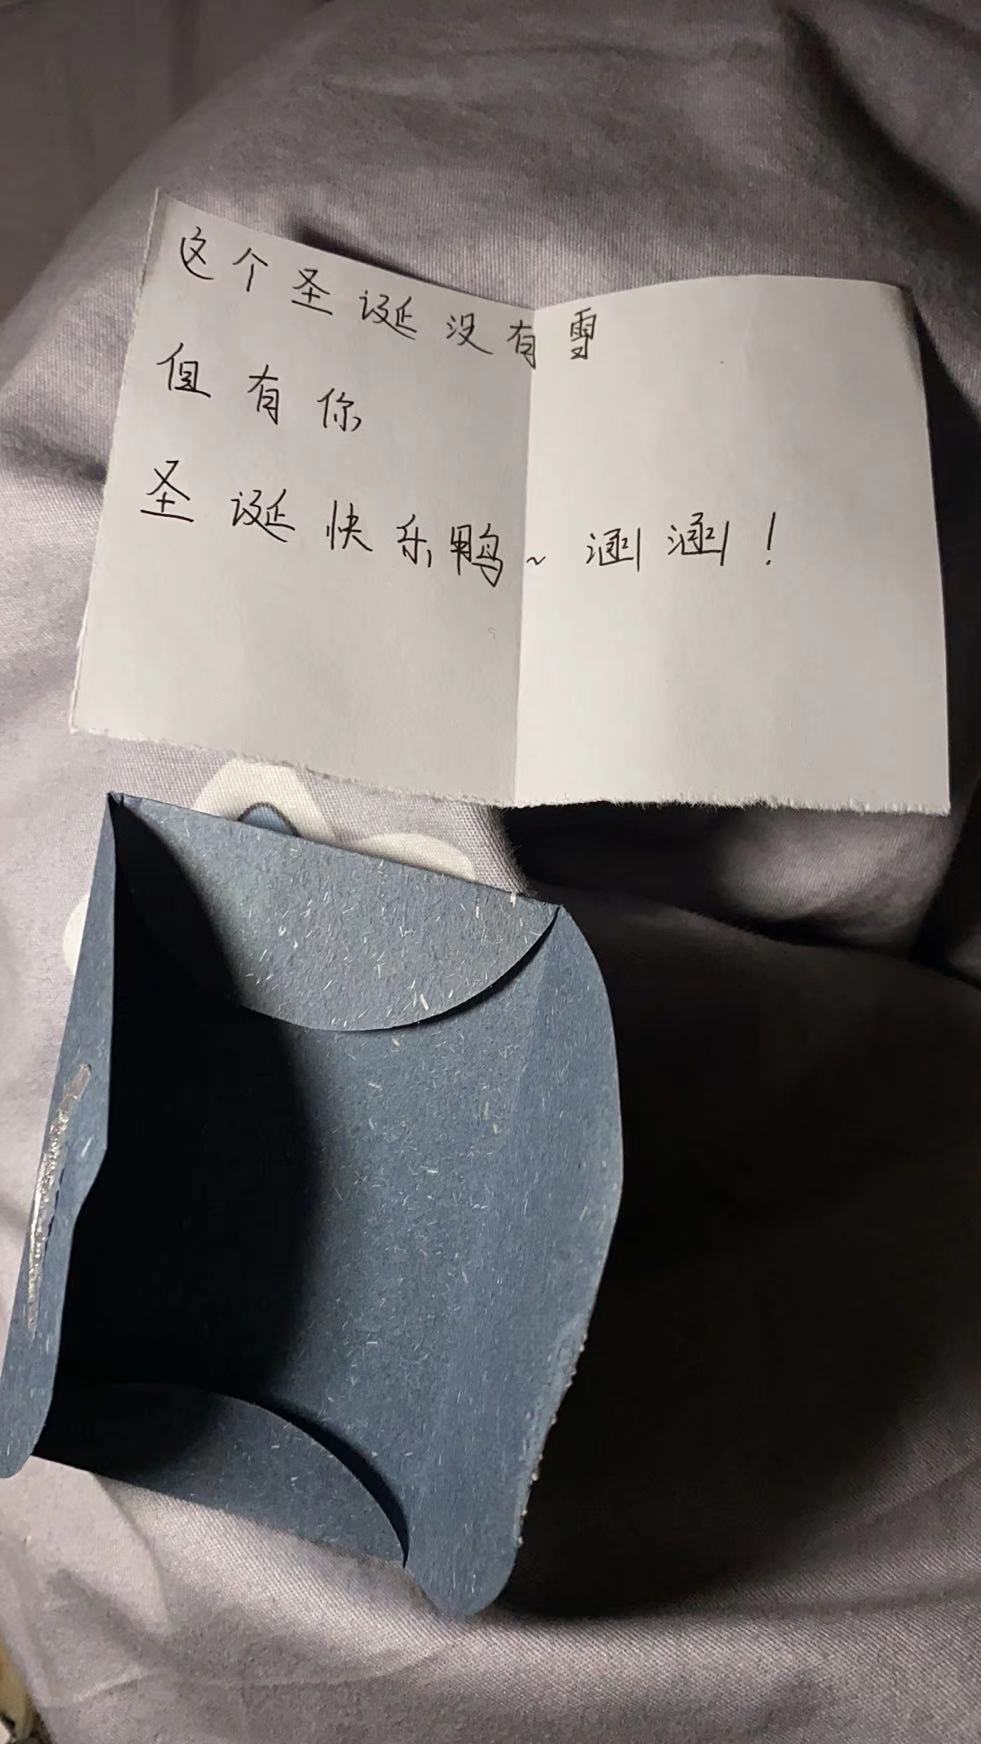 这个圣诞没有雪
但有你
圣诞快乐鸭~涵涵!